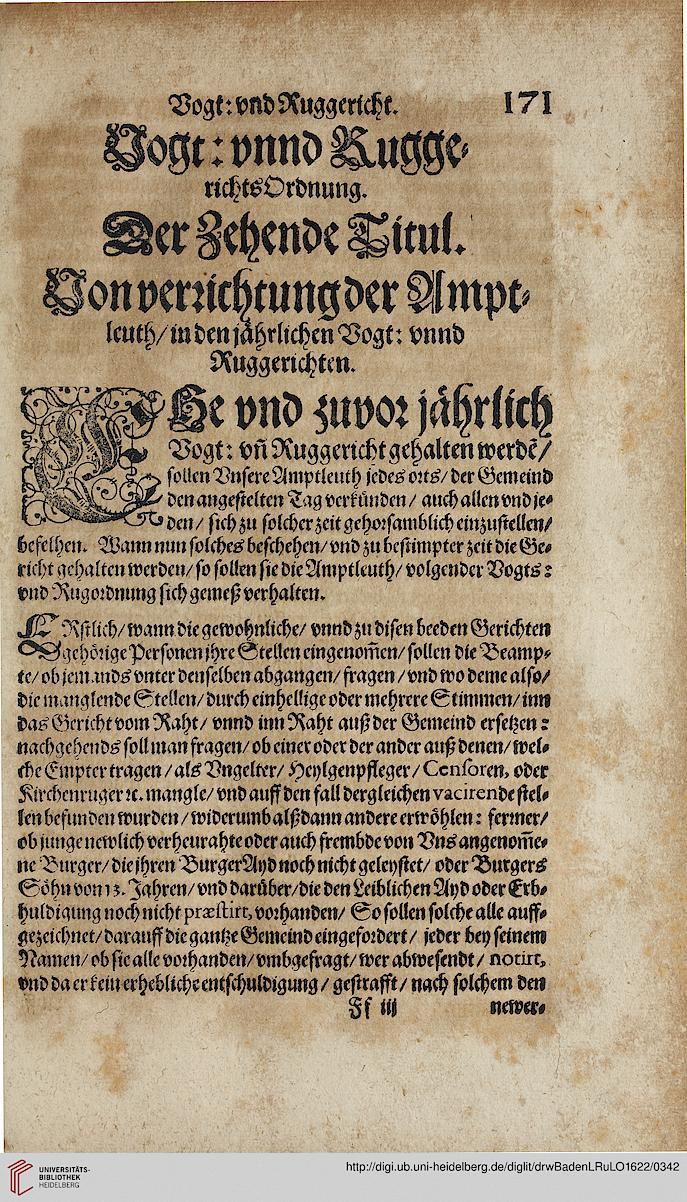 Vogt: vnd Ruggericht. 171
Vogt: vnnd Rugge-
richts Ordnung.
Der Zehende Titul.
Von verrichtung der Ampt-
leuth/ in den jährlichen Vogt: vnnd
Ruggerichten.
EHe vnd zuvor jährlich
Vogt: vn̄ Ruggericht gehalten werdē/
sollen Vnsere Amptleuth jedes orts/ der Gemeind
den angestelten Tag verkünden/ auch allen vnd je-
den/ sich zu solcher zeit gehorsamblich einzustellen/
befelhen. Wann nun solches beschehen/ vnd zu bestimpter zeit die Ge-
richt gehalten werden/ so sollen sie die Amptleuth/ volgender Vogts:
vnd Rugordnung sich gemeß verhalten.
ERstlich/ wann die gewohnliche/ vnnd zu disen beeden Gerichten
gehörige Personen jhre Stellen eingenom̄en/ sollen die Beamp-
te/ ob jemands vnter denselben abgangen/ fragen/ vnd wo deme also/
die manglende Stellen/ durch einhellige oder mehrere Stimmen/ inn
das Gericht vom Raht/ vnnd inn Raht auß der Gemeind ersetzen:
nachgehends soll man fragen/ ob einer oder der ander auß denen/ wel-
che Empter tragen/ als Vngelter/ Heylgenpfleger/ Censoren, oder
Kirchenruger ꝛc. mangle/ vnd auff den fall dergleichen vacirende stel-
len befunden wurden/ widerumb alßdann andere erwöhlen: ferrner/
ob junge newlich verheurahte oder auch frembde von Vns angenom̄e-
ne Burger/ die jhren BurgerAyd noch nicht geleystet/ oder Burgers
Söhn von 13. Jahren/ vnd darüber/ die den Leiblichen Ayd oder Erb-
huldigung noch nicht præstirt, vorhanden/ So sollen solche alle auff-
gezeichnet/ darauff die gantze Gemeind eingefordert/ jeder bey seinem
Namen/ ob sie alle vorhanden/ vmbgefragt/ wer abwesendt/ notirt,
vnd da er kein erhebliche entschuldigung/ gestrafft/ nach solchem den
Ff iij newer-
UNIVERSITÄTS-
BIBLIOTHEK
HEIDELBERG
http://digi.ub.uni-heidelberg.de/diglit/drwBadenLRuLO1622/0342